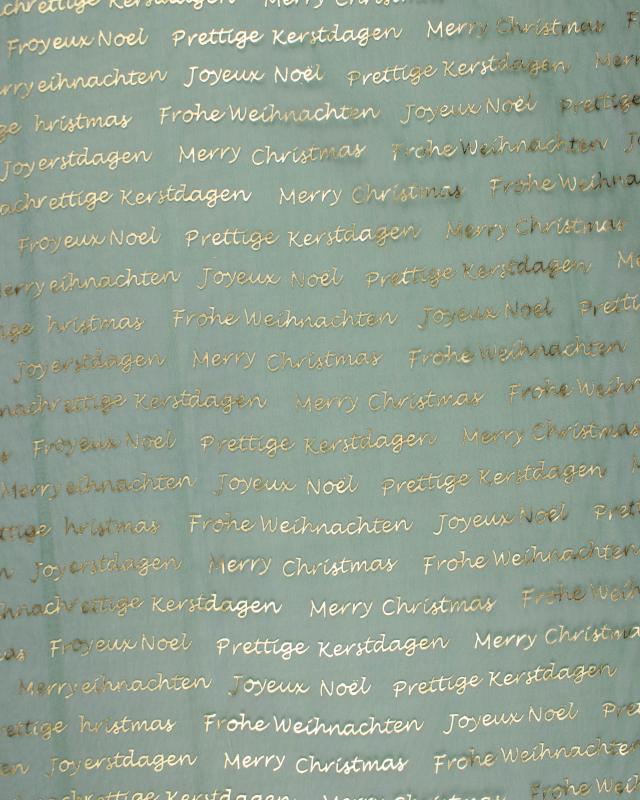 chrettige Kerstdagen Merry Christmas
Froyeux Noel Prettige Kerstdagen Merry Christmas F
rryeihnachten Joyeux Noël Prettige Kerstdagen Merr
ge hristmas Frohe Weihnachten Joyeux Noël Prettige
Joyerstdagen Merry Christmas Frohe Weihnachten Jo
achrettige Kerstdagen Merry Christmas Frohe Weihna
Froyeux Noel Prettige Kerstdagen Merry Christmas
erryeihnachten Joyeux Noël Prettige Kerstdagen Me
ige hristmas Frohe Weihnachten Joyeux Noël Pretti
Joyerstdagen Merry Christmas Frohe Weihnachten
nachrettige Kerstdagen Merry Christmas Frohe Weihn
s Froyeux Noel Prettige Kerstdagen Merry Christmas
Merryeihnachten Joyeux Noël Prettige Kerstdagen
ttige hristmas Frohe Weihnachten Joyeux Noël Pret
n Joyerstdagen Merry Christmas Frohe Weihnachten
hnachrettige Kerstdagen Merry Christmas Frohe Weih
as Froyeux Noel Prettige Kerstdagen Merry Christma
Merryeihnachten Joyeux Noël Prettige Kerstdagen
ettige hristmas Frohe Weihnachten Joyeux Noël Pre
en Joyerstdagen Merry Christmas Frohe Weihnachte
chrettige Kerstdagen Merry Christmas Frohe Wei